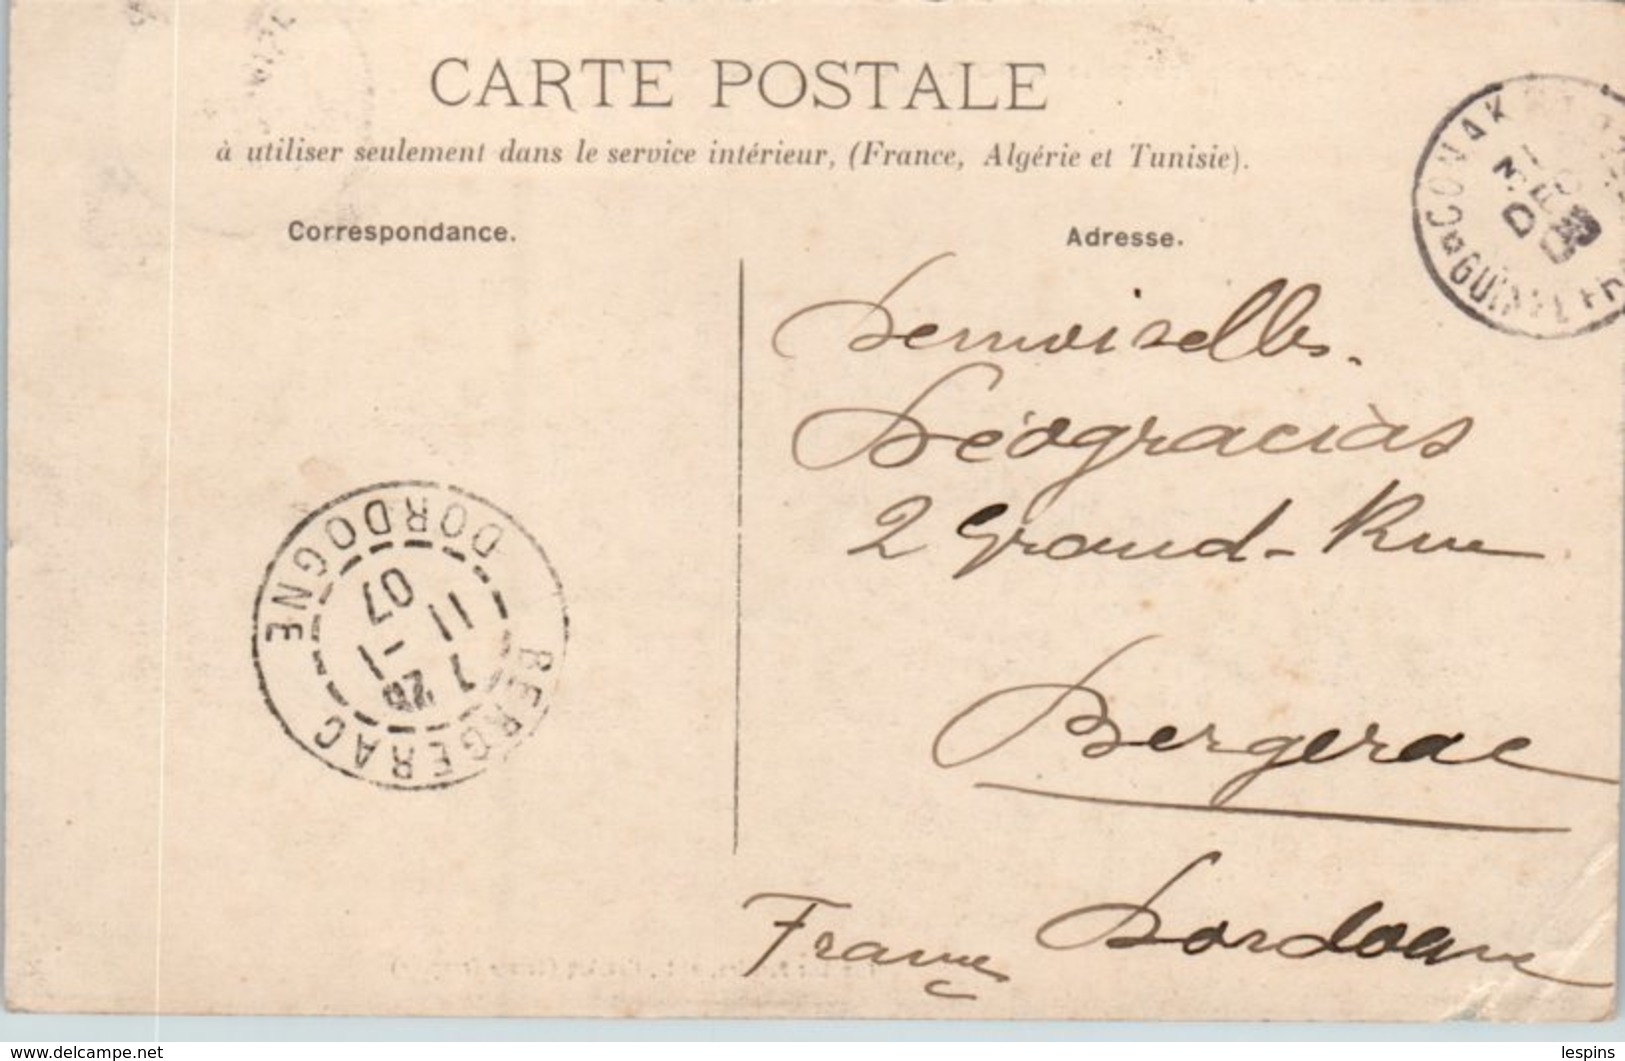 CARTE POSTALE
à utiliser seulement dans le service intérieur, (France, Algérie et Tunisie).
Correspondance.
Adresse.
CONAK
GUINÉE FR
DÉC
Demoiselles
Déogracias
2 Grand-Rue
Bergerac
Dordogne
France
BERGERAC
DORDOGNE
7 26
11 -1
07
www.delcampe.net
lespins